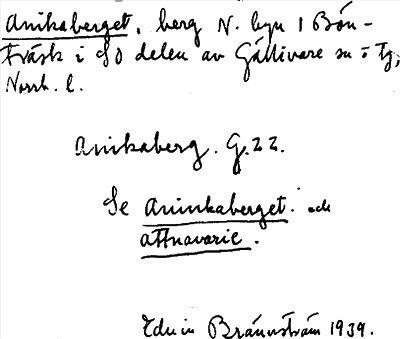 Anikaberget, berg N. byn i Bön-
träsk i SO delen av Gällivare sn o tg,
Norrb. l.
Anikaberg. G.22.
Se Aninkaberget. och
attnavarie.
Edvin Brännström 1939.